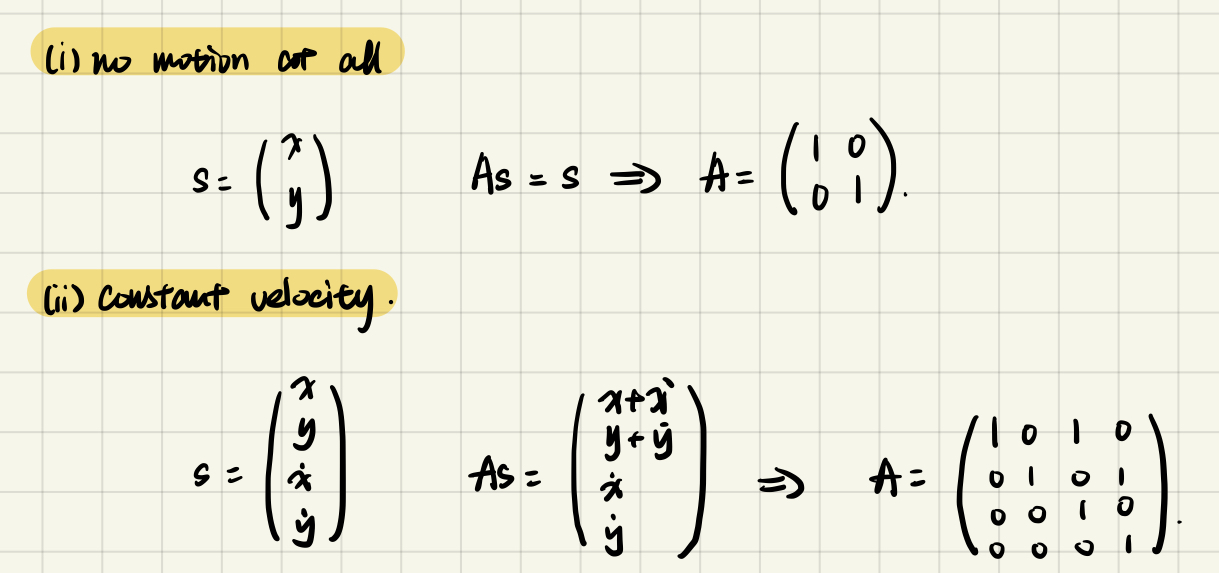 (i) no motion at all
s = (x y)   As = s ⟹ A = (1 0 0 1).
(ii) constant velocity.
s = (x y ẋ ẏ)   As = (x+ẋ y+ẏ ẋ ẏ)   ⟹   A = (1 0 1 0 0 1 0 1 0 0 1 0 0 0 0 1).